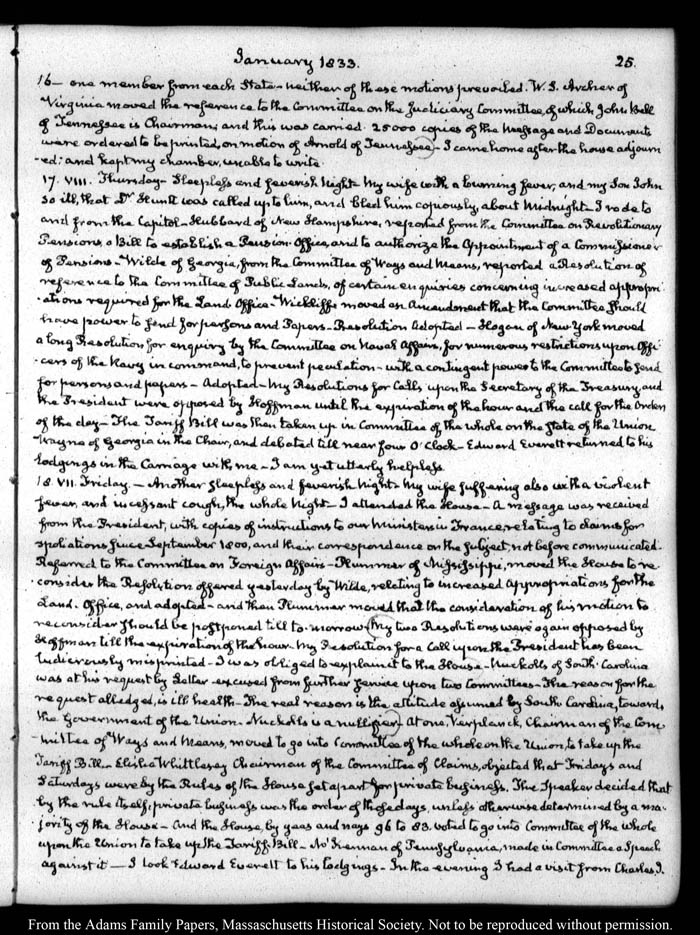 January 1833.
25.
16 — one member from each State — neither of these motions prevailed. W. S. Archer of
Virginia moved the reference to the Committee on the Judiciary Committee, of which, John Bell
of Tennessee is Chairman, and this was carried. 25000 copies of the Message and Documents
were ordered to be printed, on motion of Arnold of Tennessee — I came home after the house adjourn
-ed; and kept my chamber, unable to write.
17. VIII. Thursday — Sleepless and feverish Night — My wife with a burning fever, and my Son John
so ill, that Dr Huntt was called up, to him, and bled him copiously, about Midnight — I rode to
and from the Capitol — Hubbard of New Hampshire, reported from the Committee on Revolutionary
Pensions, a Bill to establish a Pension Office, and to authorize the Appointment of a Commissioner
of Pensions — Wilde of Georgia, from the Committee of Ways and Means, reported a Resolution of
reference to the Committee of Public Lands, of certain enquiries concerning increased appropri
-ations required for the Land Office — Wickliffe moved an Amendment that the Committee should
have power to send for persons and Papers — Resolution Adopted — Hogan of New York moved
a long Resolution for enquiry by the Committee on Naval Affairs, for numerous restrictions upon Offi
-cers of the Navy in command, to prevent peculation — with a contingent power to the Committee to send
for persons and papers — Adopted — My Resolutions for Calls upon the Secretary of the Treasury, and
the President were opposed by Hoffman until the expiration of the hour and the call for the Orders
of the day — The Tariff Bill was then taken up in Committee of the whole on the State of the Union
Wayne of Georgia in the Chair, and debated till near four O'Clock — Edward Everett returned to his
lodgings in the Carriage with me — I am yet utterly helpless.
18. VII. Friday. — Another sleepless and feverish Night — My wife suffering also with a violent
fever, and incessant cough, the whole Night — I attended the House — A message was received
from the President, with copies of instructions to our Ministers in France, relating to claims for
spoliations since September 1800, and their correspondence on the subject, not before communicated.
Referred to the Committee on Foreign Affairs — Plummer of Mississippi, moved the House to re
-consider the Resolution offered yesterday by Wilde, relating to increased Appropriations for the
Land Office, and adopted — and then Plummer moved that the consideration of his motion to
reconsider should be postponed till to-morrow. My two Resolutions were again opposed by
Hoffman till the expiration of the hour. My Resolution for a Call upon the President has been
ludicrously misprinted — I was obliged to explain it to the House — Nuckolls of South Carolina
was at his request by Letter excused from further service upon two Committees — The reason for the
request alledged, is ill health — The real reason is the attitude assumed by South Carolina, towards
the Government of the Union — Nuckolls is a nullifier. At one, Verplanck, Chairman of the Com
-mittee of Ways and Means, moved to go into Committee of the whole on the Union, to take up the
Tariff Bill — Elisha Whittlesey Chairman of the Committee of Claims, objected that Fridays and
Saturdays were by the Rules of the House set apart for private business. The Speaker decided that
by the rule itself, private business was the order of those days, unless otherwise determined by a ma-
jority of the House — And the House, by yeas and nays 96 to 83. voted to go into Committee of the whole
upon the Union to take up the Tariff Bill — McKennan of Pennsylvania, made in Committee a Speech
against it — I took Edward Everett to his lodgings — In the evening I had a visit from Charles J.
From the Adams Family Papers, Massachusetts Historical Society. Not to be reproduced without permission.